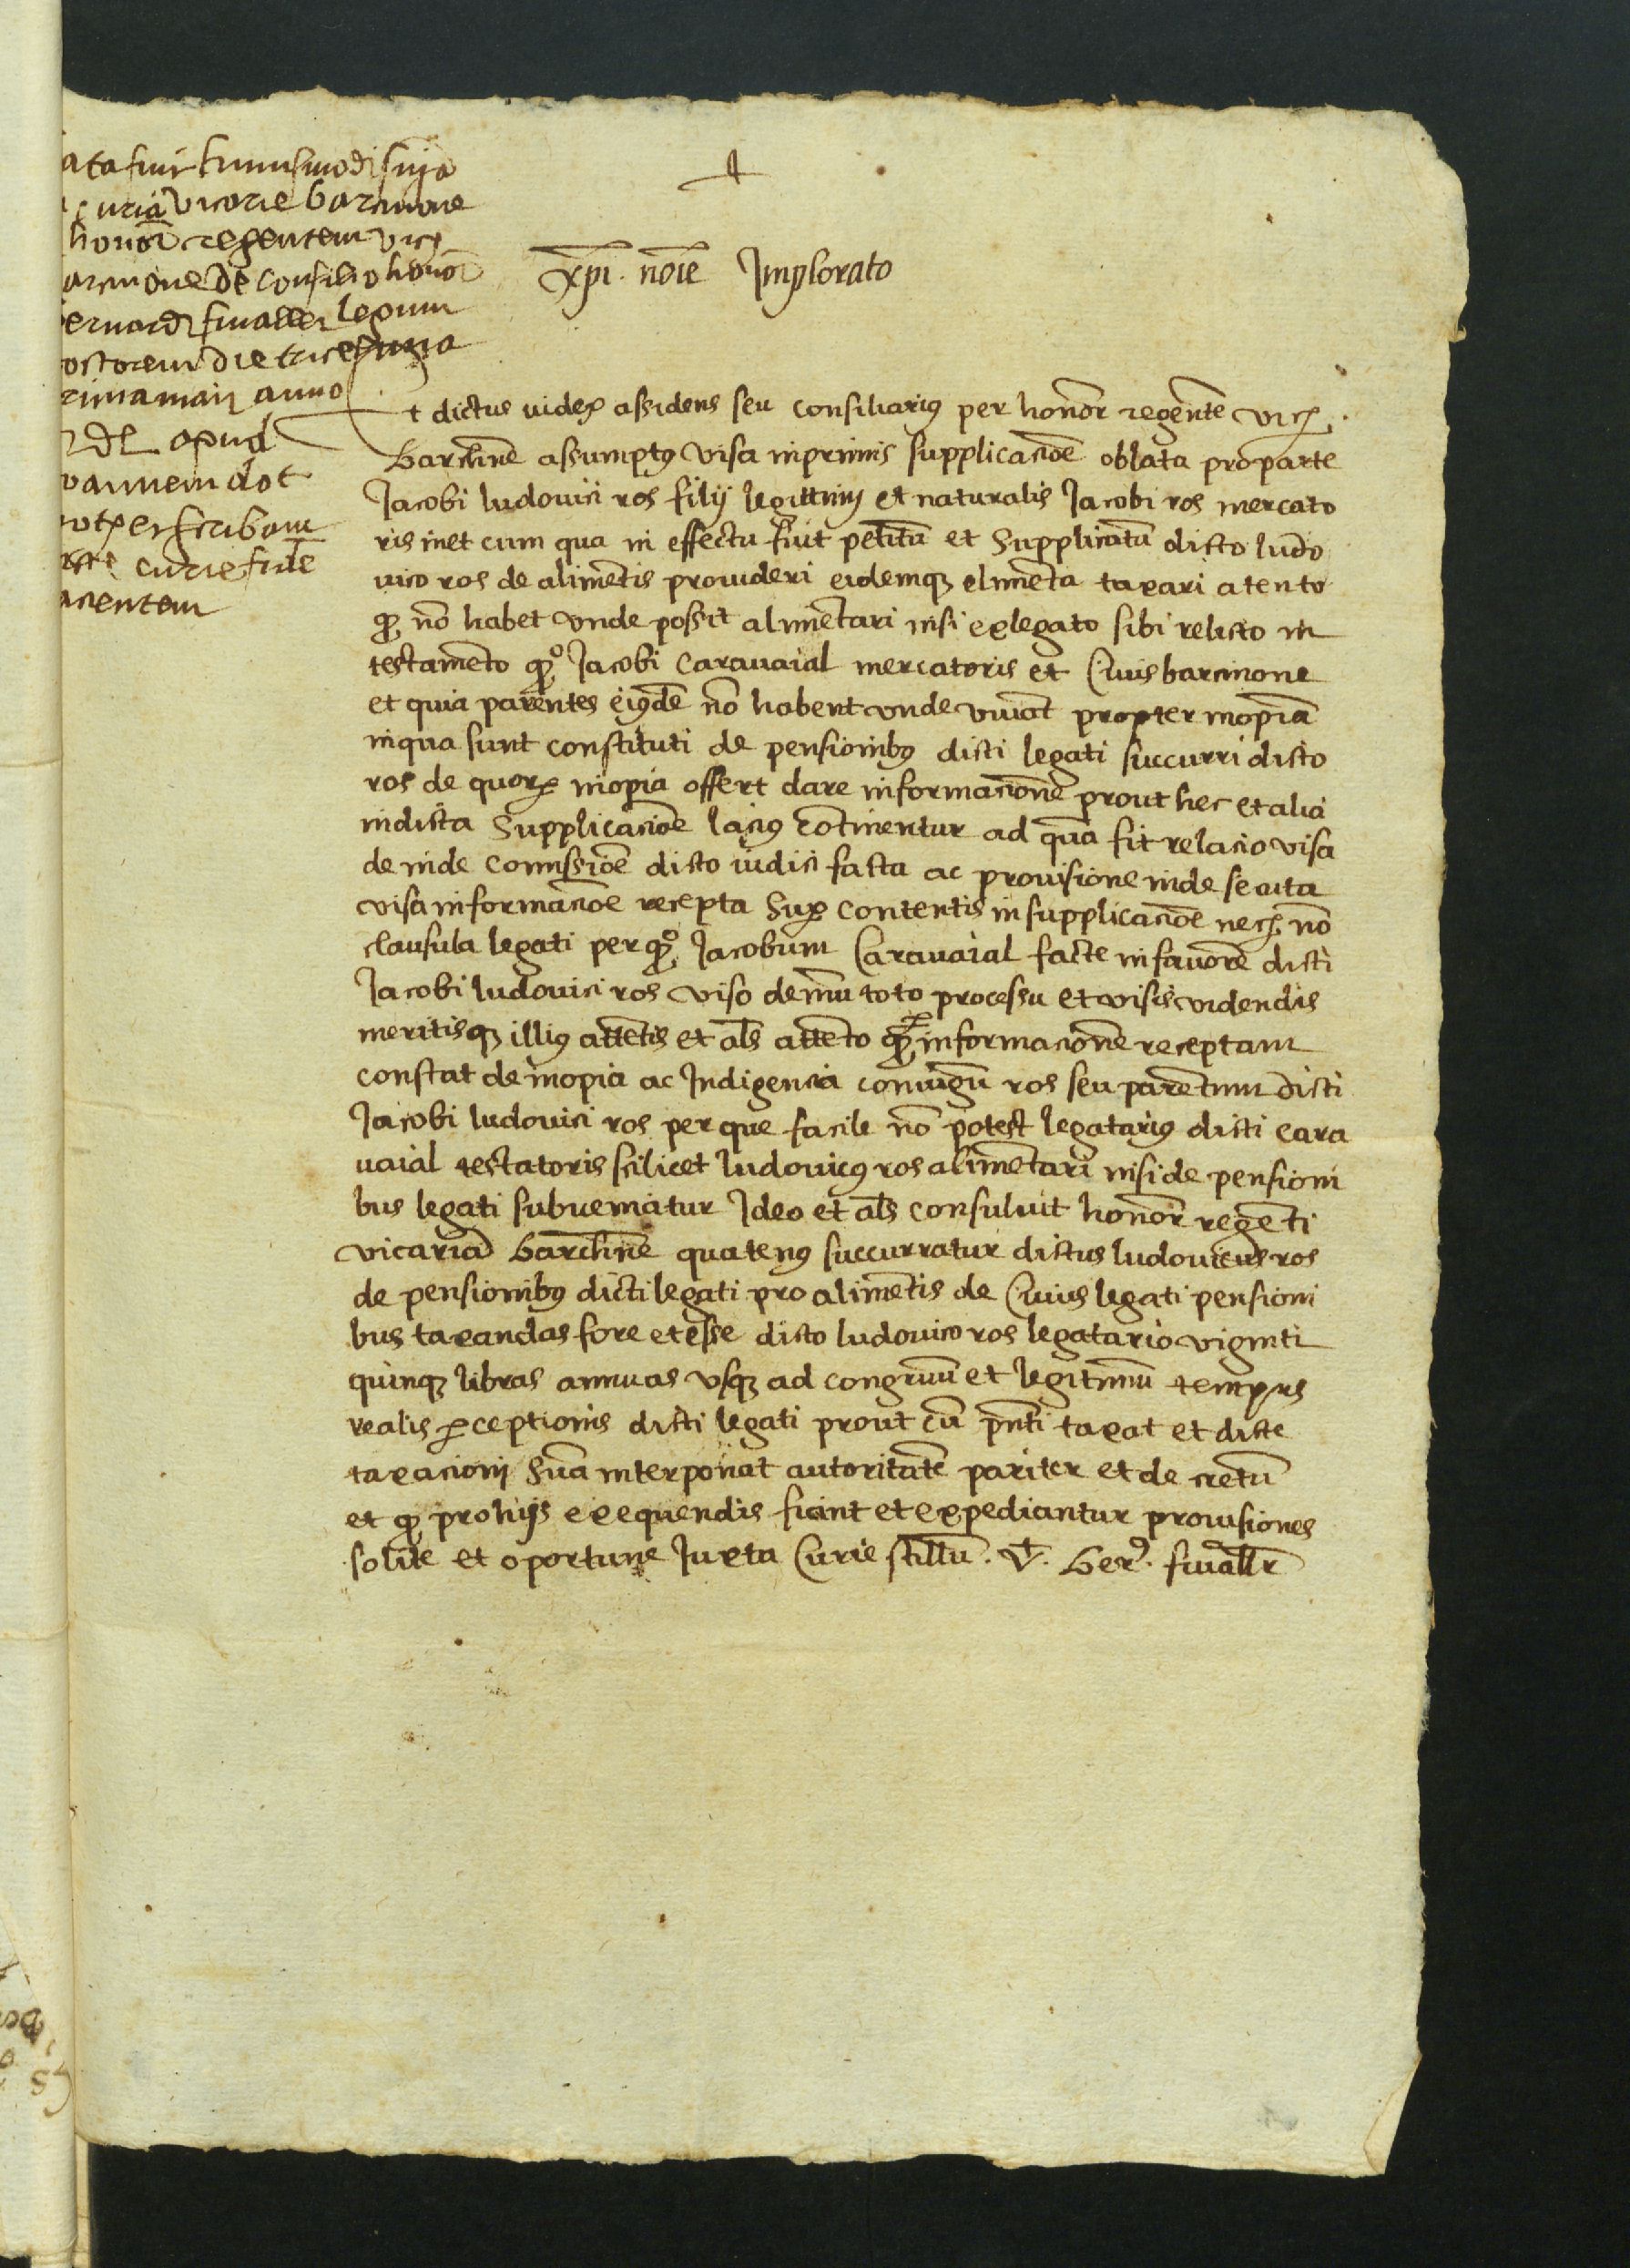 ata fuit huiusmodi snia
curiā vicarie barcinone
honor̄ regentem vicą
arcinone de consilio honor̄
ernardi fivaller legum
octorem die tricesima
rima maij anno
MDL apud
oannem dot
notꝫ et scribam
dicte curie fide
acientem
+
xp̄i. noīe Implorato
Et dictus iudex assidens seu consiliariꝰ per honōr regentē vicą
barchinē assumptꝰ visa inprimis supplicacioē oblata pro parte
Jacobi ludovici ros filij legittimj et naturalis Jacobi ros mercato
ris inet cum qua in effectu fuit petitū et supplicatū dicto ludo
vico ros de alimētis provideri eidemqꝫ elimēta taxari atento
ꝙ nō habet vnde possit alimētari nisi ex legato sibi relicto in
testamēto ꝙº Jacobi caravaial mercatoris et Civis barcinone
et quia parētes eiꝰdē nō habent vnde vivāt propter inopiā
in qua sunt constituti de pensionibꝰ dicti legati succurri dicto
ros de quorꝝ inopia offert dare informacionē prout hec et alia
in dicta supplicacioē laciꝰ cōtinentur ad quā fit relacio visa
de inde comissioē dicto iudici facta ac provisione inde secuta
visa informacioē recepta suꝑ contentis in supplicacioē necą nō
clausula legati per ꝙº Jacobum Caravaial facte in favorē dicti
Jacobi ludovici ros viso demū toto processu et visis videndis
meritisqꝫ illiꝰ attētis et als attēto ꝙ ꝑ informacionē receptam
constat de inopia ac Indigencia coniugū ros seu parētum dicti
Jacobi ludovici ros per que facile nō potest legatariꝰ dicti cara
vaial testatoris scilicet ludovicꝰ ros alimētari nisi de pensioni
bus legati subveniatur Ideo et als consuluit honōr regēti
vicariā barchinē quatenꝰ succurratur dictus ludovicus ros
de pensionibꝰ dicti legati pro alimētis de Cuius legati pensioni
bus taxandas fore et esse dicto ludovico ros legatario viginti
quinqꝫ libras annuas vsqꝫ ad congruū et legitimū tempus
realis ꝑceptionis dicti legati prout cū pn̄ti taxat et dicte
taxacionj suā interponat autoritatē pariter et decretū
et ꝙ pro hijs exequendis fiant et expediantur provisiones
solite et oportune Juxta Curie stillū. Vt. Berꝰ. fivallr̄